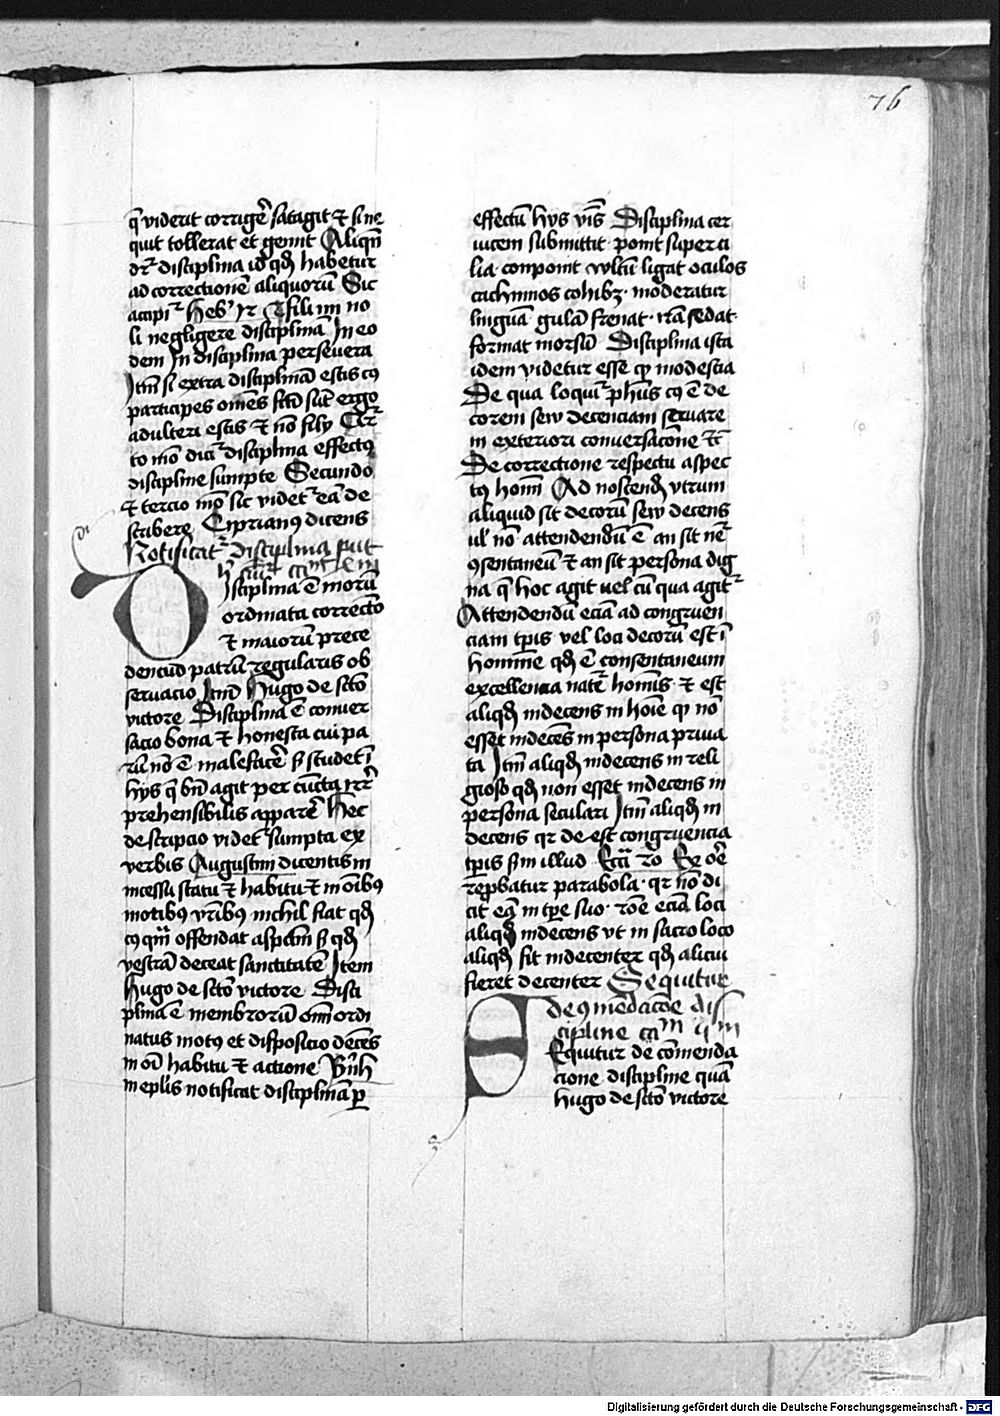 76
q̄ viderit corrigē satagit ⁊ si ne
quit tollerat et gemit Aliqn̄
dr̄ disciplina id qd̄ habetur
ad correctionē aliquorū Sic
accipiʳ hebʳ 12 fili mi no
li negligere disciplinā In eo
dem In disciplina persevera
Itm̄ si extra disciplinā estis cꝰ
participes om̄es fc̄i sūt ergo
adulteri estis ⁊ nō filij Qr̄
to mō dicʳ disciplina effectꝰ
discipline sumpte Secundo
⁊ tercio mō sic videtʳ eā de
scribere Ciprianus dicens
Notificatʳ disciplina
isciplina ē morū
ordinata correctō
⁊ maiorū prece
denciū patrū regularis ob
servacio Itm̄ Hugo de scto
victore Disciplina ē conver
sacio bona ⁊ honesta cui pa
rū nō ē malefacē sʒ studet ī
hijs q̄ bn̄ agit per cūcta irr̄
prehensibilis apparē Hec
descripcio videtʳ sumpta ex
verbis Augustini dicentis in
incessu statu ⁊ habitu ⁊ in oībꝰ
motibꝰ vr̄ibꝰ nichil fiat qd̄
cꝰqm̄ offendat aspectm̄ sʒ qd̄
vestrā deceat sanctitatē Item
Hugo de scto victore Disci
plina ē membrorū omī ordi
natus motꝰ et disposicio decēs
in oī habitu ⁊ actione Bn̄h
in eplīs notificat disciplinā ꝑ
effectū hijs v̄is Disciplina cer
vicem submittit ponit superci
lia conponit vultū ligat oculos
cachinnos cohibʒ moderatur
linguā gulā frenat irā sedat
format morsū Disciplina ista
idem videtur esse qđ modestia
De qua loquiʳ ph̄us cꝰ ē de
corem sew decenciam servare
in exteriori conversacōne ⁊c̄
De correctione respectu aspec
tꝰ homī Ad noscendū vtrum
aliquid sit decorū sew decens
vl nō attendendū ē an sit ne
ꝯsentaneū ⁊ an sit persona dig
na q̄ hoc agit vel cū qua agitʳ
Attendendū eciā ad congruen
ciam tp̄is vel loci decorū est ī
homine qd̄ ē consentaneum
excellencia natē homīs ⁊ est
aliqd̄ indecens in hoīe qđ nō
esset indecēs in persona priva
ta Itm̄ aliqd̄ indecens in reli
gioso qd̄ non esset indecens in
persona seculari Itm̄ aliqd̄ in
decens qr de est congruencia
tp̄is sm̄ illud Ecc̄i 20 Ex ore
rep̄batur parabola qr nō di
cit eā in tp̄e suo rōe eciā loci
aliqd̄ indecens vt in sacro loco
aliqd̄ fit indecenter qd̄ alicui
fieret decenter Sequitur
de ꝯmēdacōe dis
cipline ca
Equitur de cōmenda
cione discipline quā
hugo de scto victore
Digitalisierung gefördert durch die Deutsche Forschungsgemeinschaft - DFG